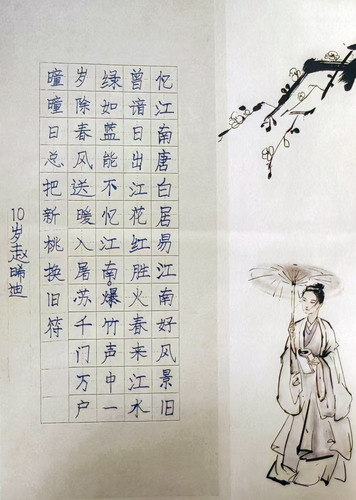 忆江南唐白居易江南好风景旧
曾谙日出江花红胜火春来江水
绿如蓝能不忆江南。爆竹声中一
岁除春风送暖入屠苏千门万户
曈曈日总把新桃换旧符
10岁赵晞迪